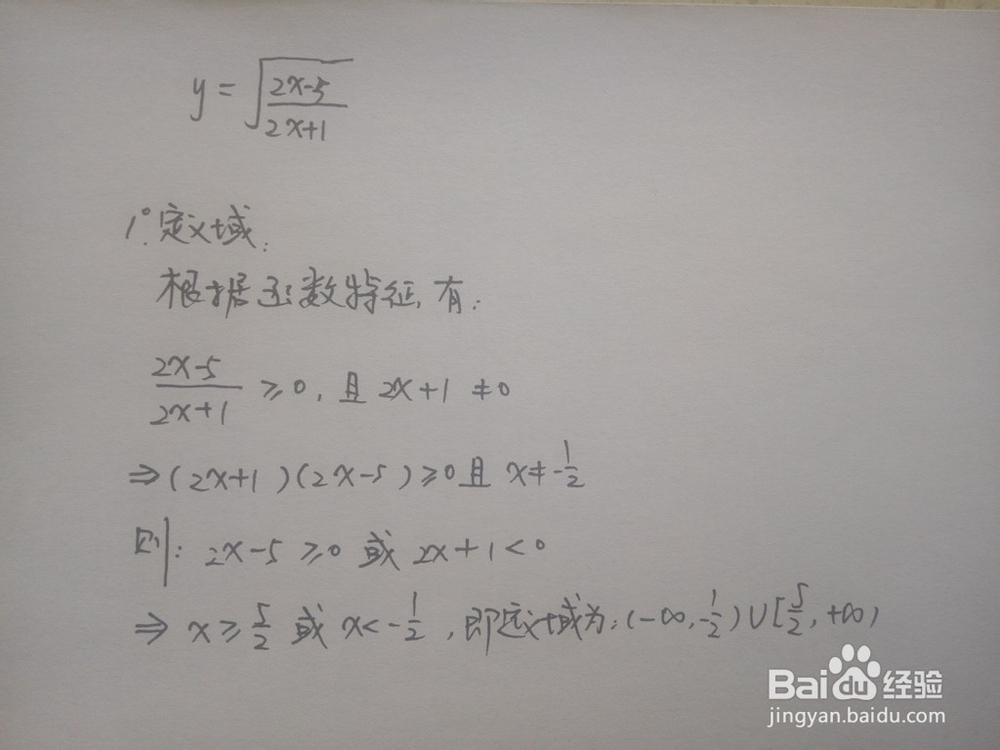 y = √((2x-5)/(2x+1))
1°. 定义域:
根据函数特征, 有:
(2x-5)/(2x+1) ≥ 0, 且 2x+1 ≠ 0
⇒ (2x+1)(2x-5) ≥ 0 且 x ≠ -1/2
则: 2x-5 ≥ 0 或 2x+1 < 0
⇒ x ≥ 5/2 或 x < -1/2, 即定义域为: (-∞, -1/2) ∪ [5/2, +∞)
Baidu经验
jingyan.baidu.com